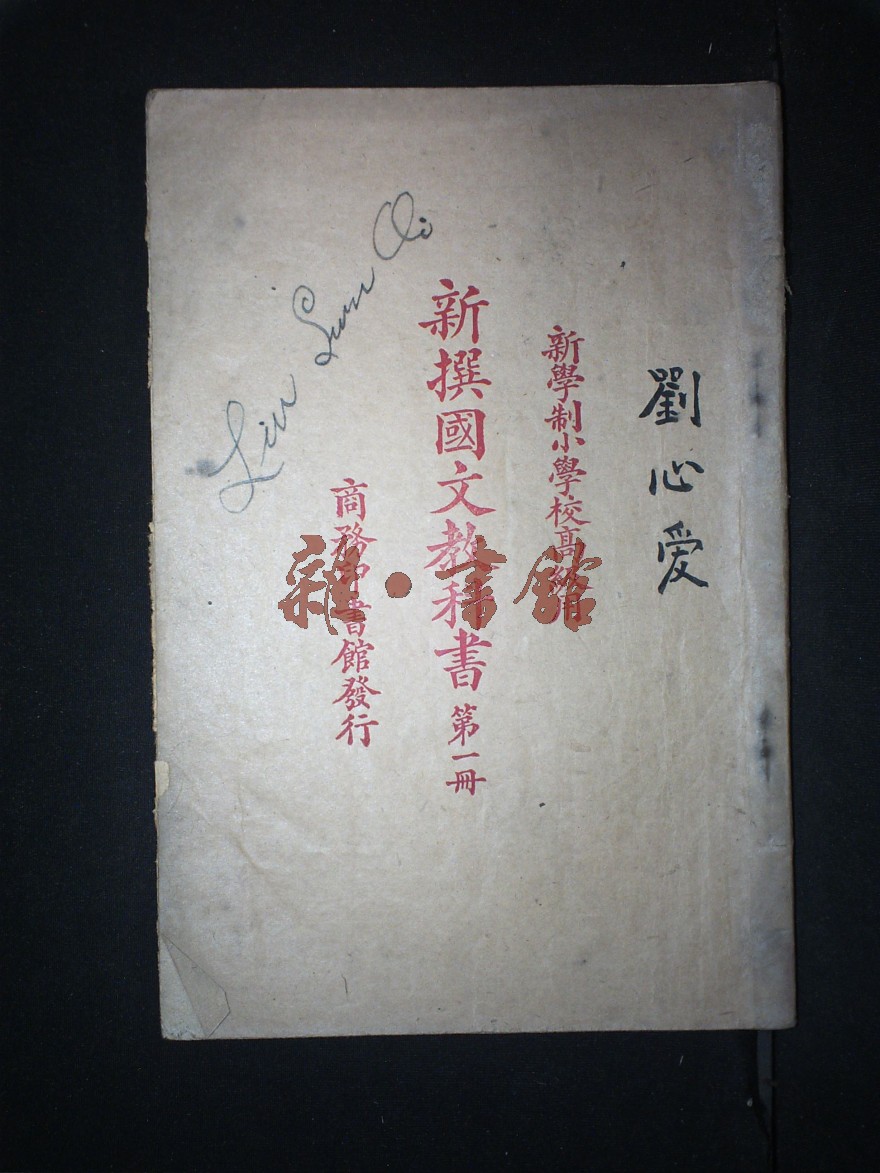 劉心爱
新學制小學校高級用
新撰國文教科書 第一冊
商務印書館發行
Liu Sum Oi
雜·書館